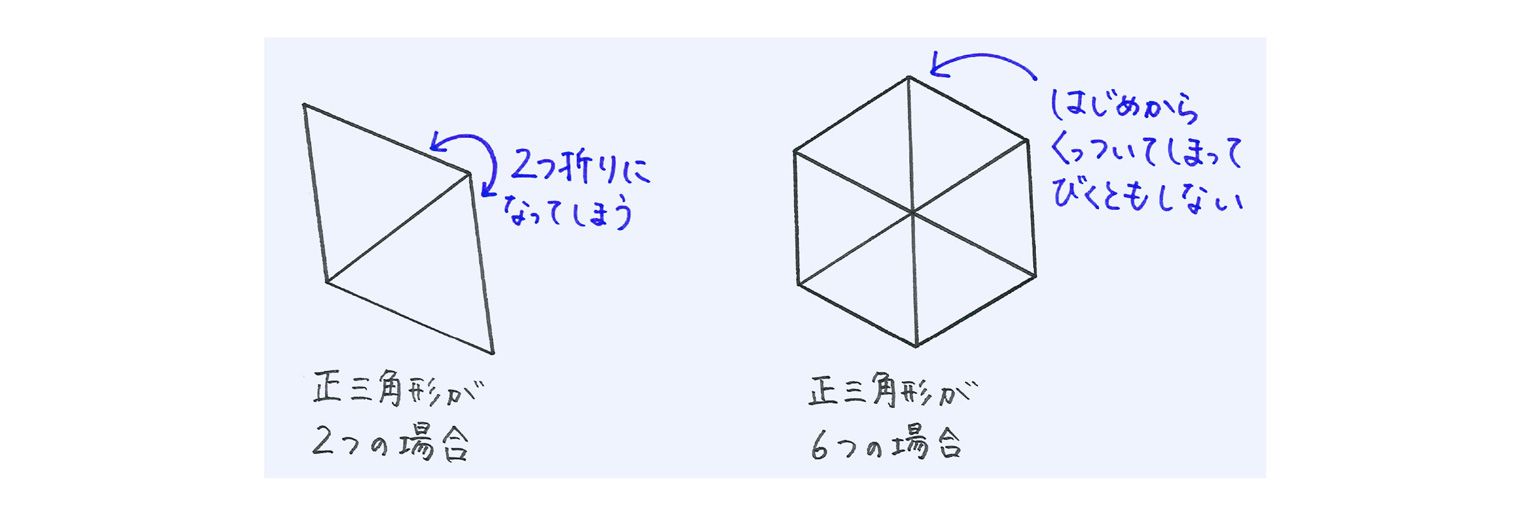 2つ折りに
なってしまう
正三角形が
2つの場合
はじめから
くっついてしまって
びくともしない
正三角形が
6つの場合